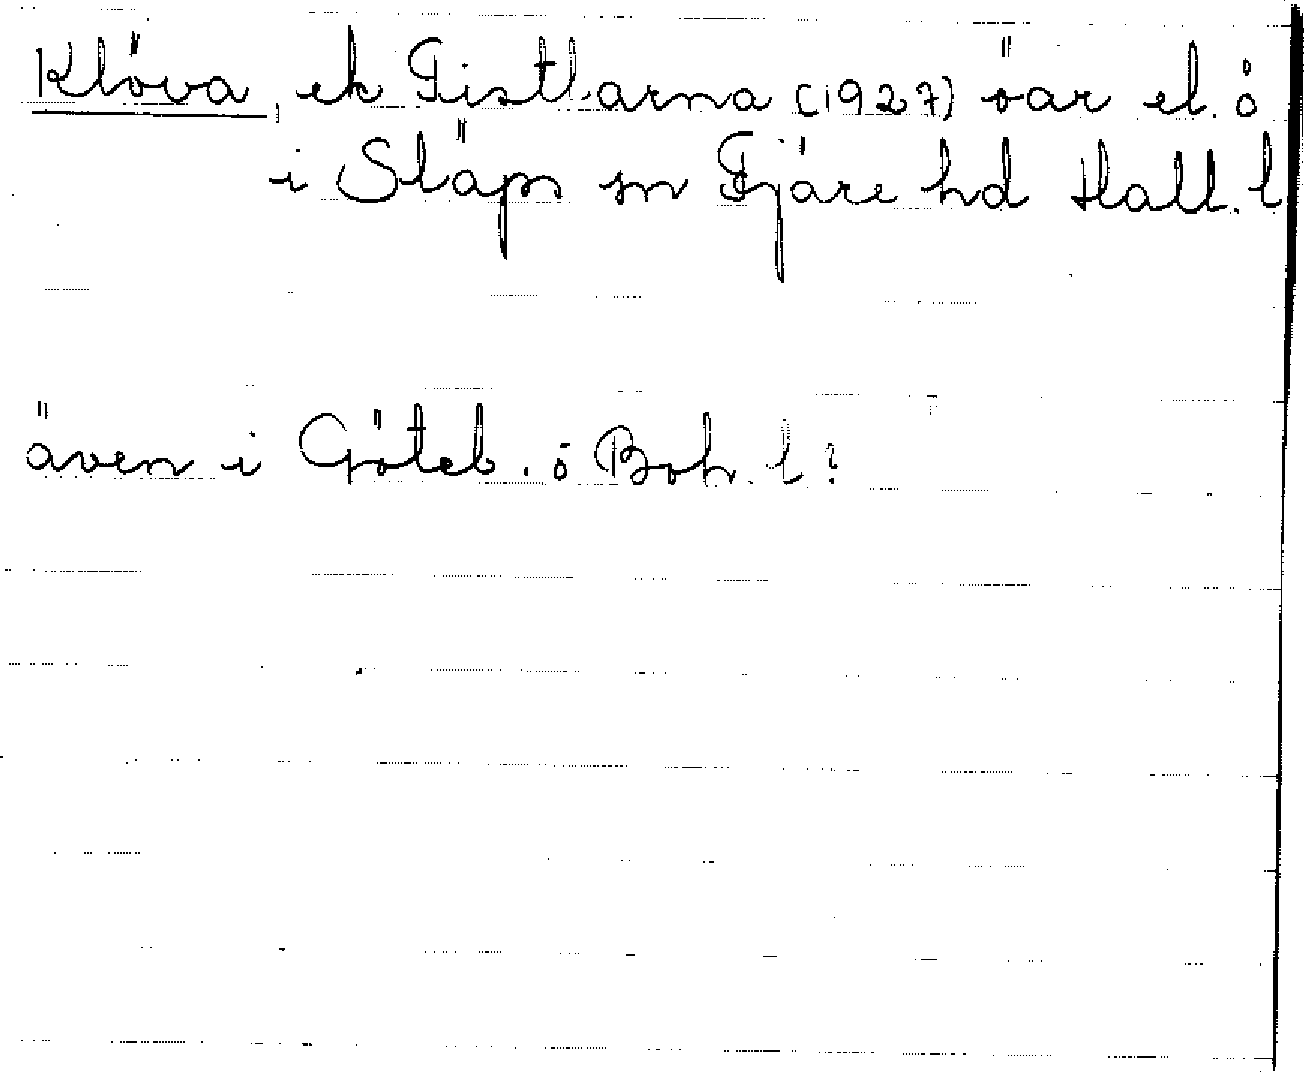 Klöva, ek Tistlarna (1927) öar el. ö
i Släps sn Fjäre hd Hall. l
även i Göteb. o Boh. l?